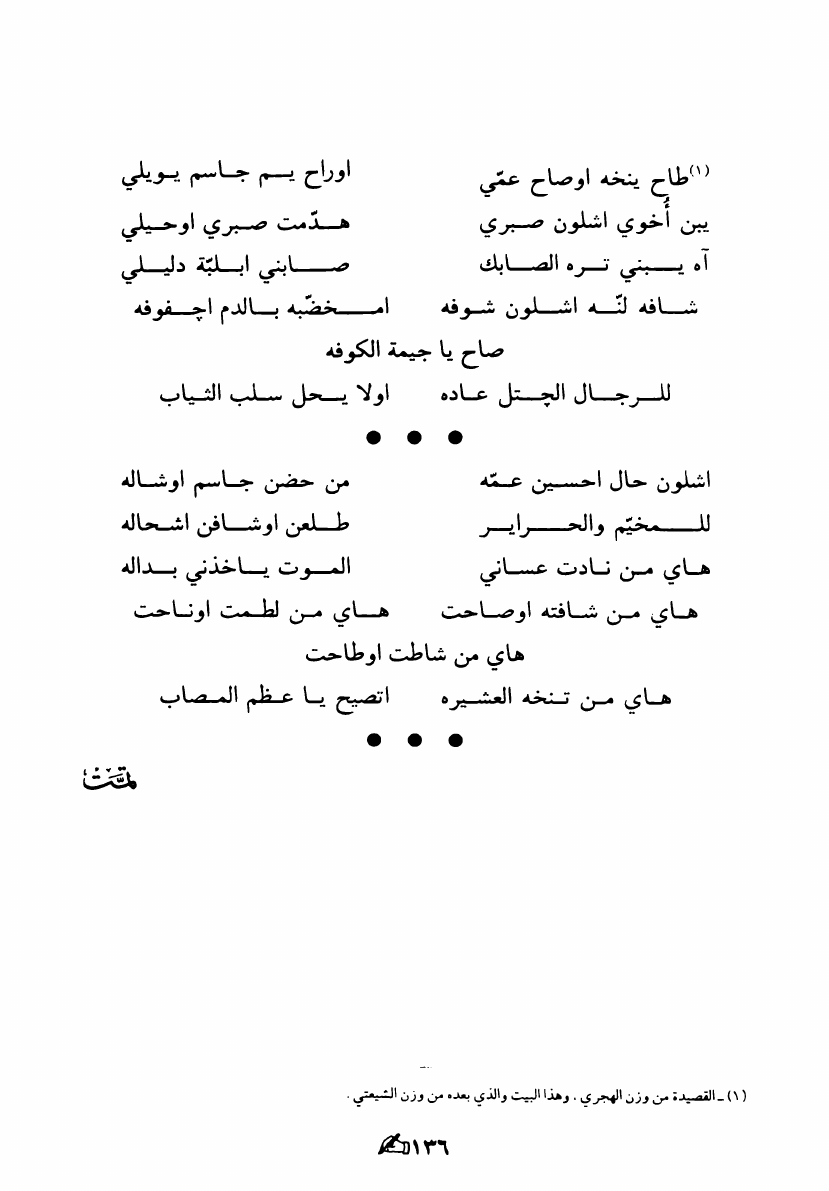 (١)طاح ينخه اوصاح عمّي اوراح يم جاسم يويلي
يبن أُخوي اشلون صبري هدّمت صبري اوحيلي
آه يبني تره الصابك صابني ابلبّة دليلي
شافه لنّه اشلون شوفه امخضّبه بالدم اچفوفه
صاح يا جيمة الكوفه
للرجال الچتل عاده اولا يحل سلب الثياب
● ● ●
اشلون حال احسين عمّه من حضن جاسم اوشاله
للمخيّم والحراير طلعن اوشافن اشحاله
هاي من نادت عساني الموت ياخذني بداله
هاي من شافته اوصاحت هاي من لطمت اوناحت
هاي من شاطت اوطاحت
هاي من تنخه العشيره اتصيح يا عظم المصاب
● ● ●
تمَّت
(١) ـ القصيدة من وزن الهجري . وهذا البيت والذي بعده من وزن الشيعتي .
١٣٦